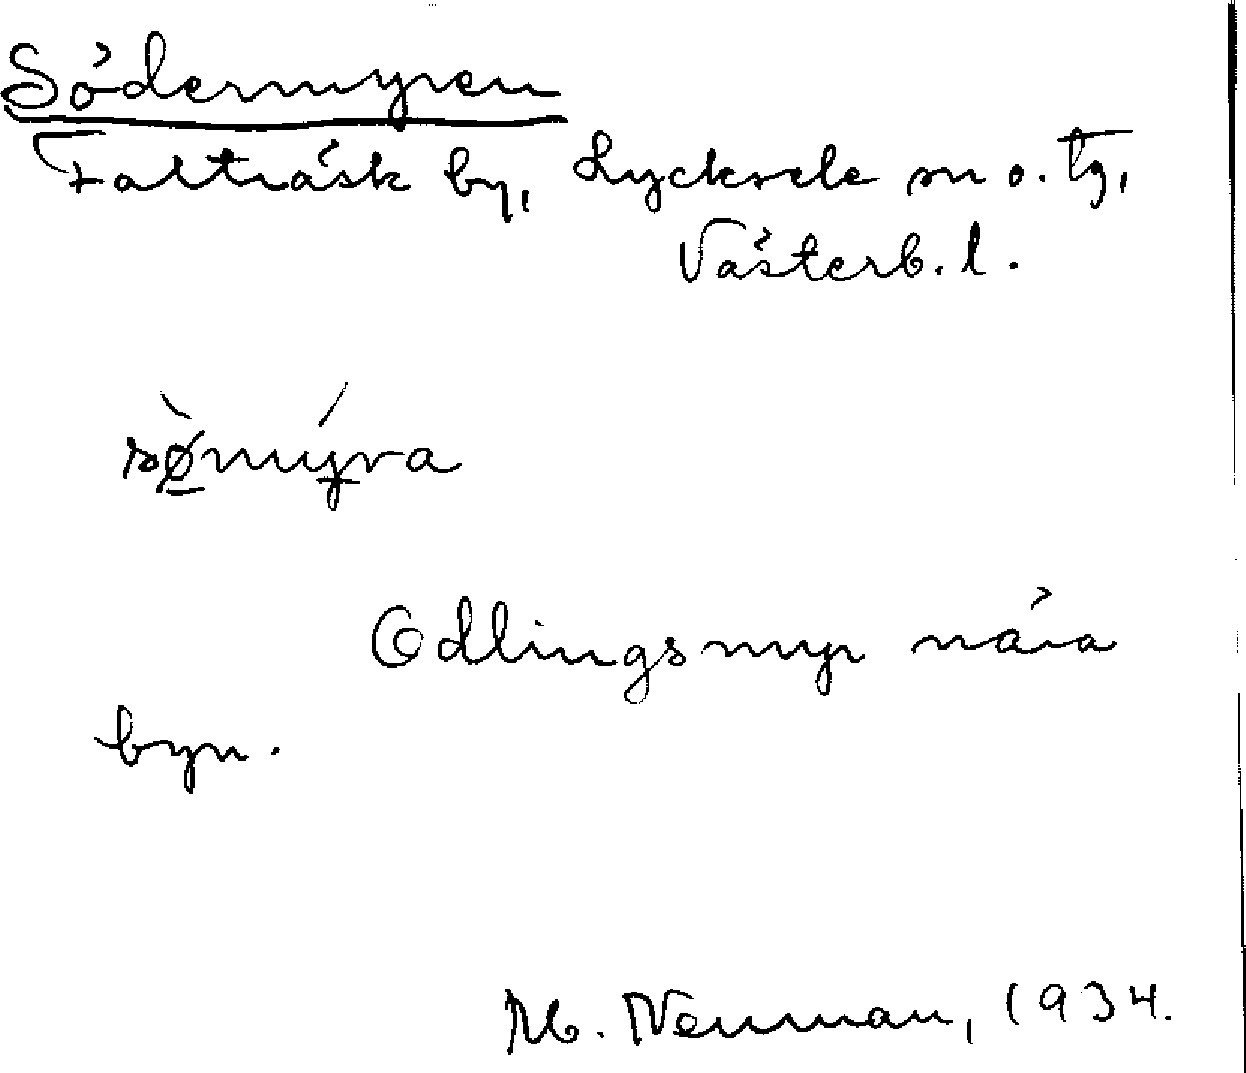 Södermyren
Falträsk by, Lycksele sn o. tg,
Västerb. l.
sø̱̀mýra
Odlingsmyr nära
byn.
M. Neuman, 1934.